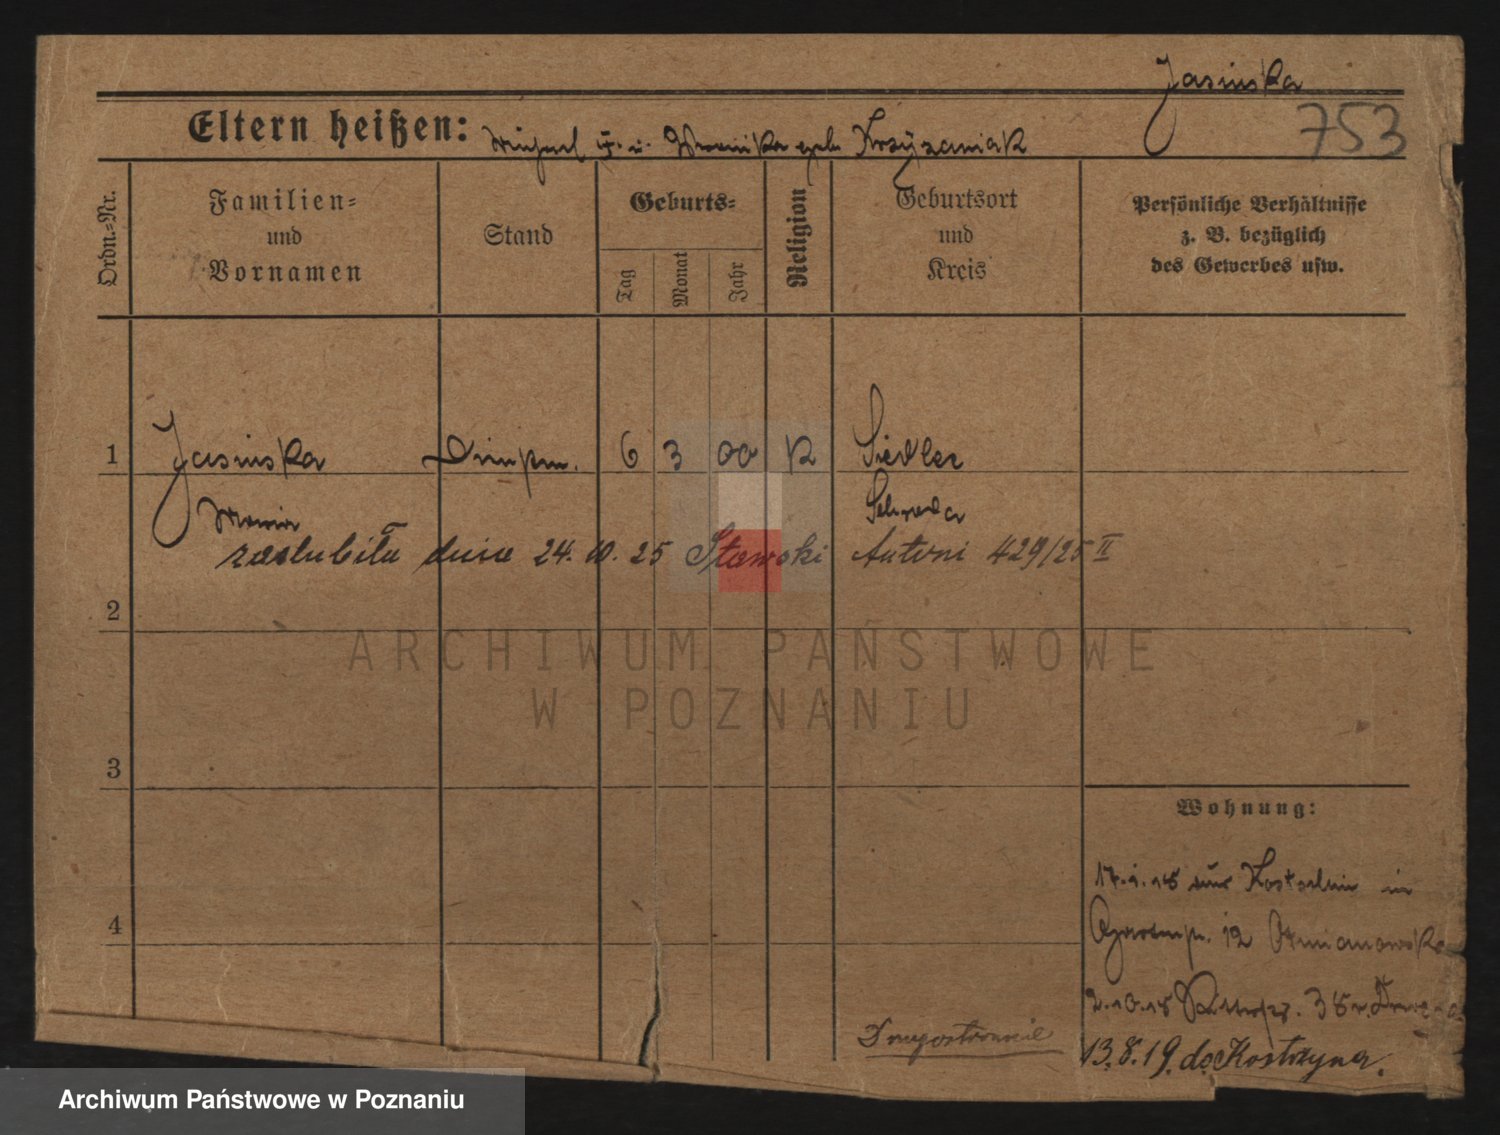 Jasinska
753
Eltern heißen: Michael u. geb. Krzyzaniak
Ordn.-Nr.
Familien-
und
Vornamen
Stand
Geburts-
Tag
Monat
Jahr
Religion
Geburtsort
und
Kreis
Persönliche Verhältnisse
z. B. bezüglich
des Gewerbes usw.
1 Jasinska 6 3 00 K Siedlec
Maria Schroda
zaslubiła dnia 24. 10. 25 Stawski Antoni 429/25 II
2
3
4
Wohnung:
17.1.18 aus Kostschin in
12
2.10.18 38
13.8.19 do Kostrzyna.
Drugostronnie
ARCHIWUM PAŃSTWOWE
W POZNANIU
Archiwum Państwowe w Poznaniu